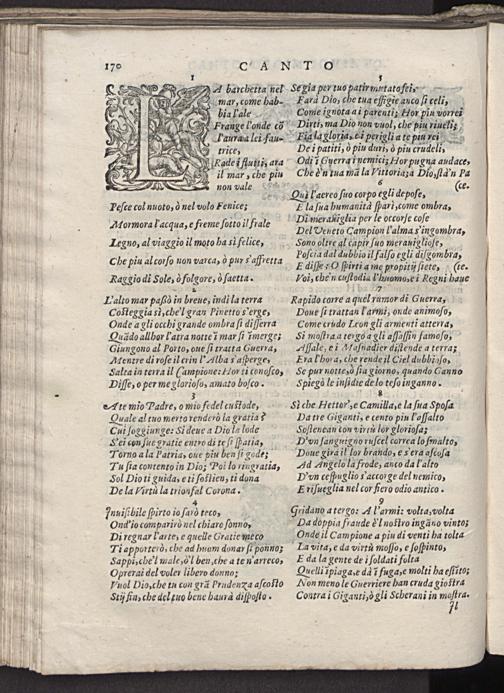 170 CANTO
1
LA barchetta nel
mar, come hab-
bia l'ale
Frange l'onde cõ
l'aura a lei fau-
trice,
Rade i flutti, ara
il mar, che piu
non vale
Pesce col nuoto, ò nel volo Fenice;
Mormora l'acqua, e freme sotto il frale
Legno, al viaggio il moto ha sì felice,
Che piu al corso non varca, ò pur s'affretta
Raggio di Sole, ò folgore, ò saetta.
2
L'alto mar passò in breue, indi la terra
Costeggia sì, che'l gran Pinetto s'erge,
Onde a gli occhi grande ombra si disserra
Quãdo allhor l'atra notte ĩ mar si ĩmerge;
Giungono al Porto, oue si tratta Guerra,
Mentre di rose il crin l'Alba s'asperge,
Salta in terra il Campione: Hor ti conosco,
Disse, o per me glorioso, amato bosco.
3
A te mio Padre, o mio fedel custode,
Quale al tuo merto renderò la gratia?
Cui soggiunge: Si deue a Dio la lode
S'ei con sue gratie entro di te si spatia,
Torno a la Patria, oue piu ben si gode;
Tu sia contento in Dio; Poi lo ringratia,
Sol Dio ti guida, e ti sostien, ti dona
De la Virtù la trionfal Corona.
4
Inuisibile spirto io sarò teco,
Ond'io comparirò nel chiaro sonno,
Di regnar l'arte, e quelle Gratie meco
Ti apporterò, che ad huom donar si ponno;
Sappi, che'l male, ò'l ben, che a te n'arreco,
Oprerai del voler libero donno;
Vuol Dio, che tu con grã Prudenza ascosto
Stij fin, che del tuo bene haurà disposto.
5
Se già per tuo patir mutato fei,
Farà Dio, che tua effigie anco si celi,
Come ignota a i parenti; Hor piu vorrei
Dirti, ma Dio non vuol, che piu riueli;
Fia la gloria, e i perigli a te piu rei
De i patiti, ò piu duri, ò piu crudeli,
Odi ĩ Guerra i nemici; Hor pugna audace,
Che è'n tua mã la Vittoria; a Dio, sta'n Pa
(ce.
6
Quì l'aereo suo corpo egli depose,
E la sua humanità sparì, come ombra,
Di merauiglia per le occorse cose
Del Veneto Campion l'alma s'ingombra,
Sono oltre al capir sue merauigliose,
Poscia dal dubbio il falso egli disgombra,
E disse: O spirti a me propitij siete, (te.
Voi, che'n custodia l'huomo, e i Regni haue
7
Rapido corre a quel rumor di Guerra,
Doue si trattan l'armi, onde animoso,
Come crudo Leon gli armenti atterra,
Si mostra a tergo a gli assassin famoso,
Assale, e i Masnadier distende a terra;
Era l'hora, che rende il Ciel dubbioso,
Se pur notte, ò sia giorno, quando Ganno
Spiegò le insidie de lo teso inganno.
8
Sì che Hettor', e Camilla, e la sua Sposa
Da tre Giganti, e cento piu l'assalto
Sostenean con virtù lor gloriosa;
D'vn sanguigno ruscel correa lo smalto,
Doue gira il lor brando, e s'era ascosa
Ad Angelo la frode, anco da l'alto
D'vn cespuglio s'accorge del nemico,
E risueglia nel cor fiero odio antico.
9
Gridano a tergo: A l'armi: volta, volta
Da doppia fraude è'l nostro ingãno vinto;
Onde il Campione a piu di venti ha tolta
La vita, e da virtù mosso, e sospinto,
E da la gente de i soldati folta
Quelli ĩpiaga, e dà ĩ fuga, e molti ha estĩto;
Non meno le Guerriere han cruda giostra
Contra i Giganti, ò gli Scherani in mostra.
Il